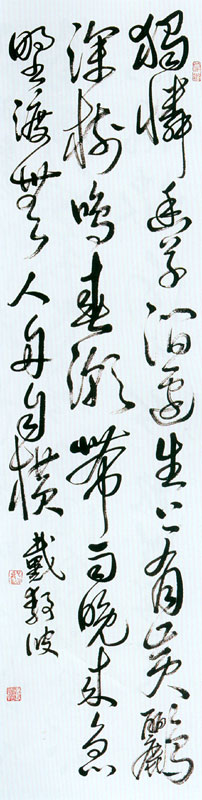 獨憐幽草澗邊生上有黃鸝
深樹鳴春潮帶雨晚來急
野渡無人舟自橫
戴 波